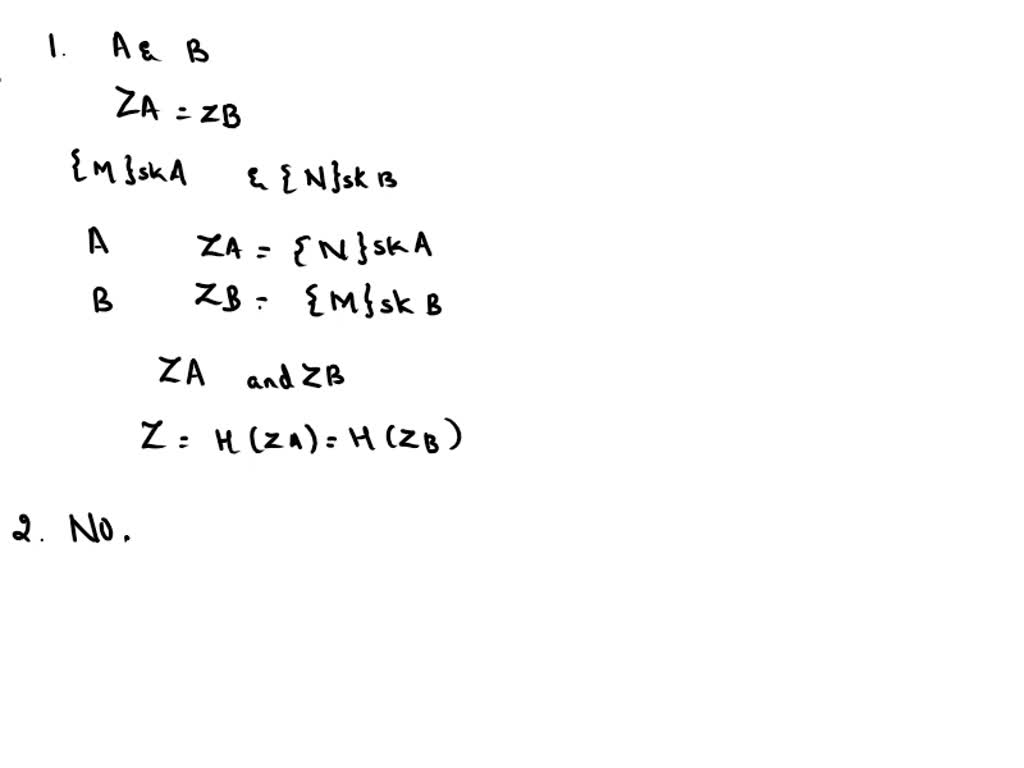 1. A & B
ZA = ZB
{M}skA & {N}skB
A ZA = {N}skA
B ZB = {M}skB
ZA and ZB
Z = H(ZA) = H(ZB)
2. No.